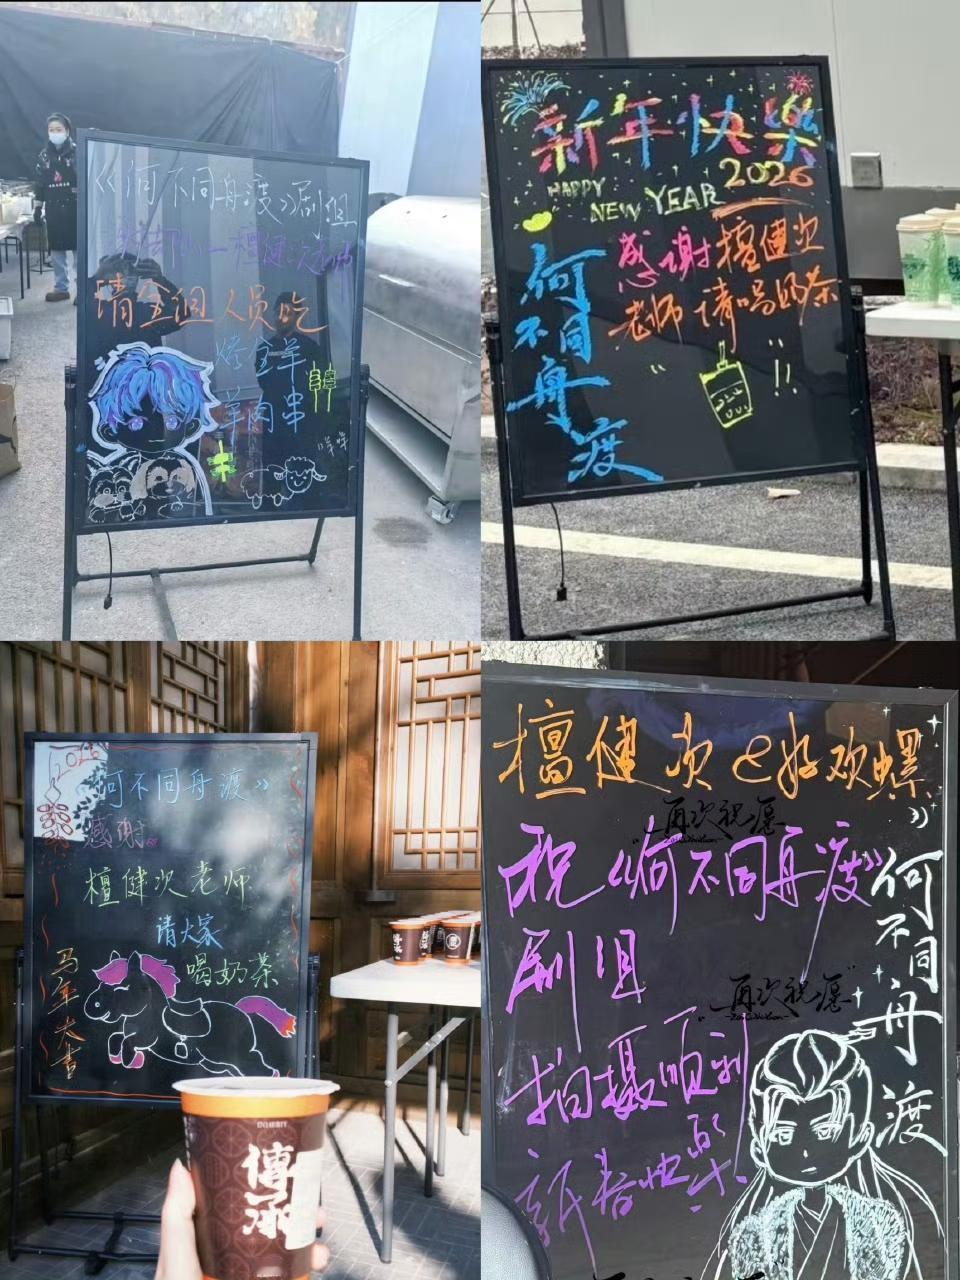 《何不同舟渡》剧组
檀健次老师
请全组人员吃
烤全羊
羊肉串
"咩咩"
新年快樂
2026
HAPPY
NEW YEAR
感谢檀健次
老师请喝奶茶
"  "!!
何不同舟渡
2026
《何不同舟渡》
感谢
檀健次老师
请大家
喝奶茶
马年大吉
傳承
檀健次
好欢螺
再次祝愿
祝《何不同舟渡》
剧组
"再次祝愿"
拍摄顺利
新春快乐
何不同舟渡